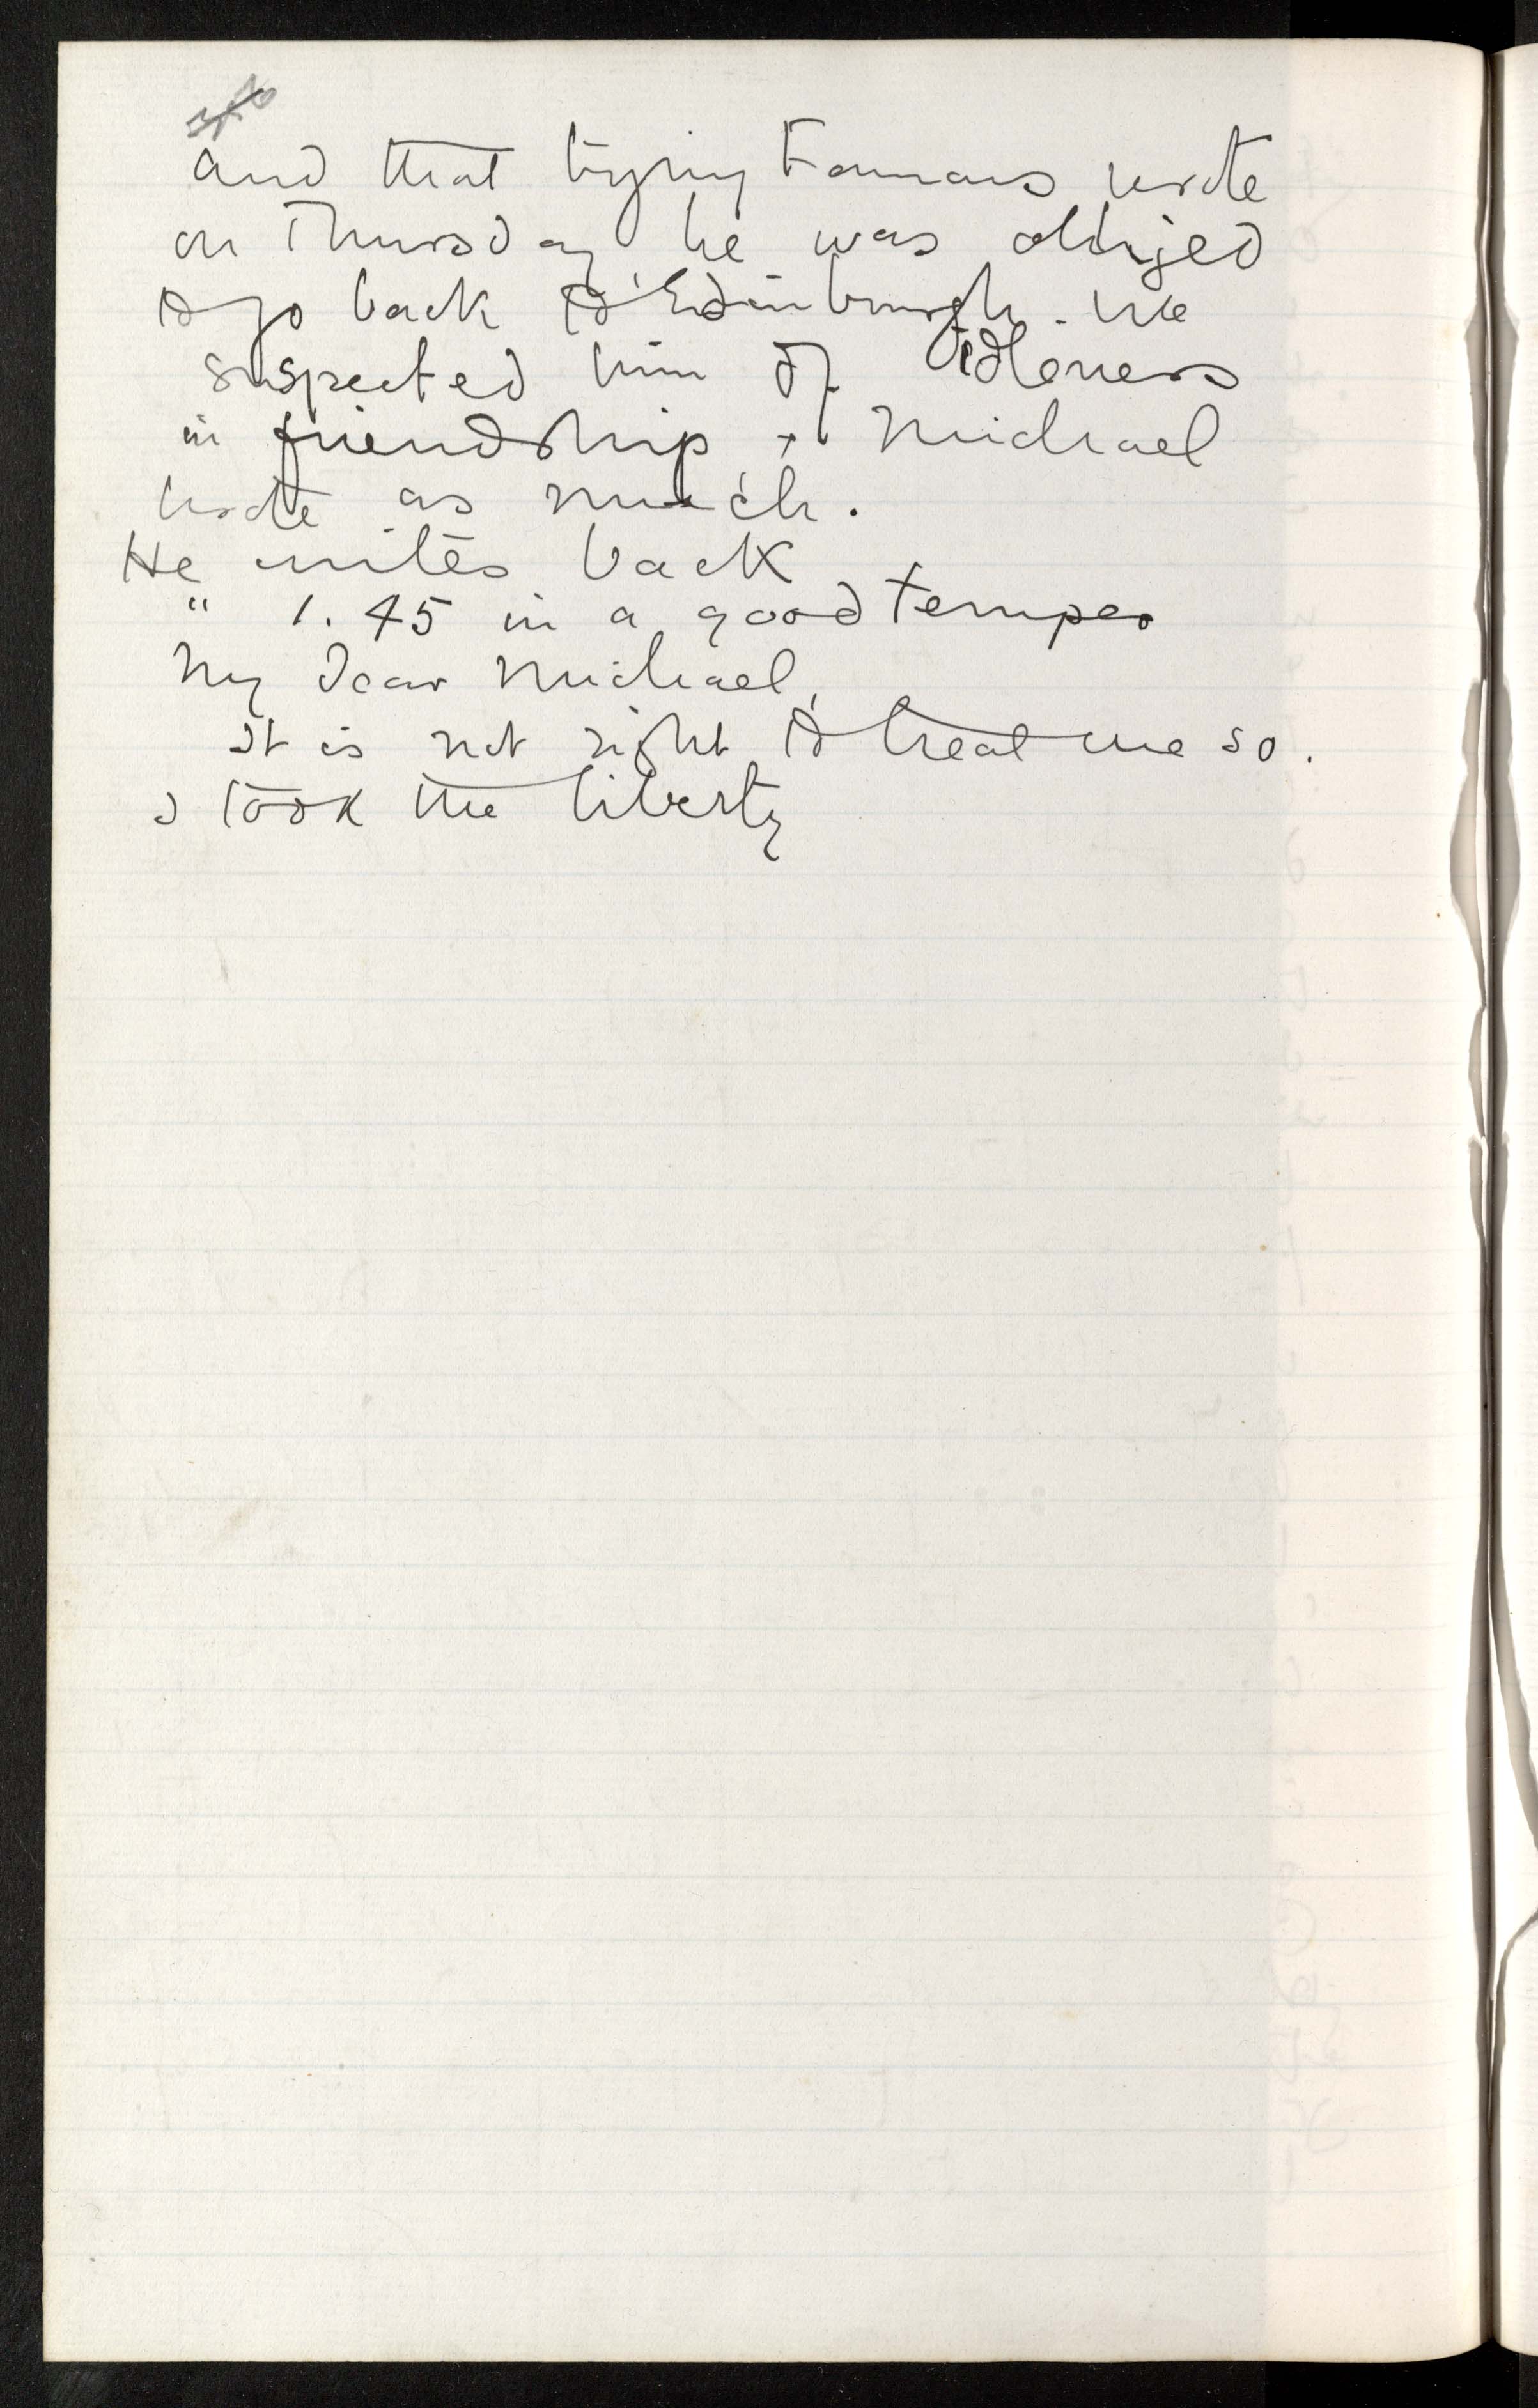 and that trying Tommaso wrote
on Thursday he was obliged
to go back to Edinburgh. We
suspected him of idleness
in friendship + Michael
wrote as much.
He writes back
" 1.45 in a good temper
My dear Michael,
It is not right to treat me so.
I took the liberty